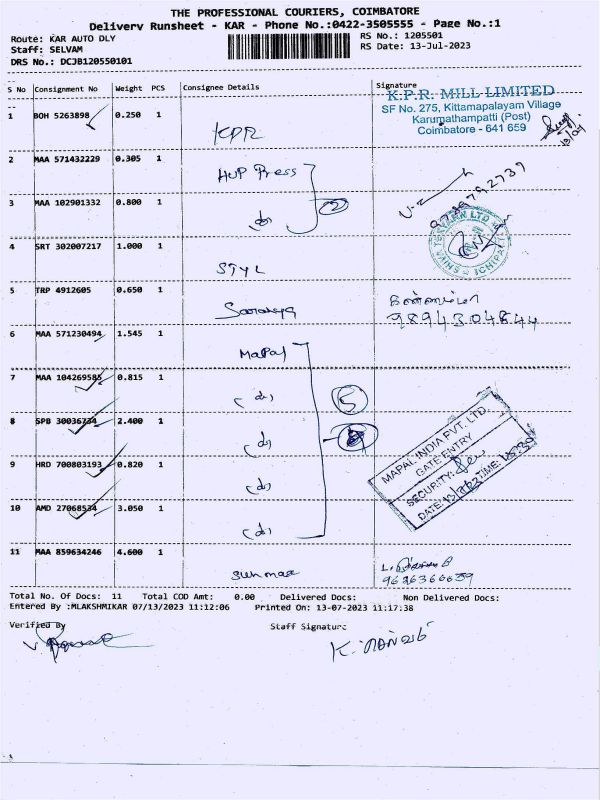 THE PROFESSIONAL COURIERS, COIMBATORE
Delivery Runsheet - KAR - Phone No.:0422-3505555 - Page No.:1
Route: KAR AUTO DLY
RS No.: 1205501
Staff: SELVAM
RS Date: 13-Jul-2023
DRS No.: DCJB120550101
S No Consignment No Weight PCS Consignee Details Signature
K.P.R. MILL LIMITED
SF No. 275, Kittampalayam Village
Karumathampatti (Post)
Coimbatore - 641 659
1 BOH 5263898 0.250 1 KPR
2 MAA 571432229 0.305 1 HUP Press
3 MAA 102901332 0.800 1 (do) 2
9789792739
4 SRT 302007217 1.000 1 STYL
5 TRP 4912605 0.650 1 Saranya
9894304844
6 MAA 571230494 1.545 1 Mapal
7 MAA 104269585 0.815 1 (do) 5
8 SPB 30036734 2.400 1 (do)
MAPAL INDIA PVT. LTD.
GATE ENTRY
SECURITY:
DATE: TIME:
9 HRD 700803193 0.820 1 (do)
10 AMD 27068534 3.050 1 (do)
11 MAA 859634246 4.600 1 Sunmax
9626366659
Total No. Of Docs: 11 Total COD Amt: 0.00 Delivered Docs: Non Delivered Docs:
Entered By :MLAKSHMIKAR 07/13/2023 11:12:06 Printed On: 13-07-2023 11:17:38
Verified By Staff Signature
K. செல்வம்